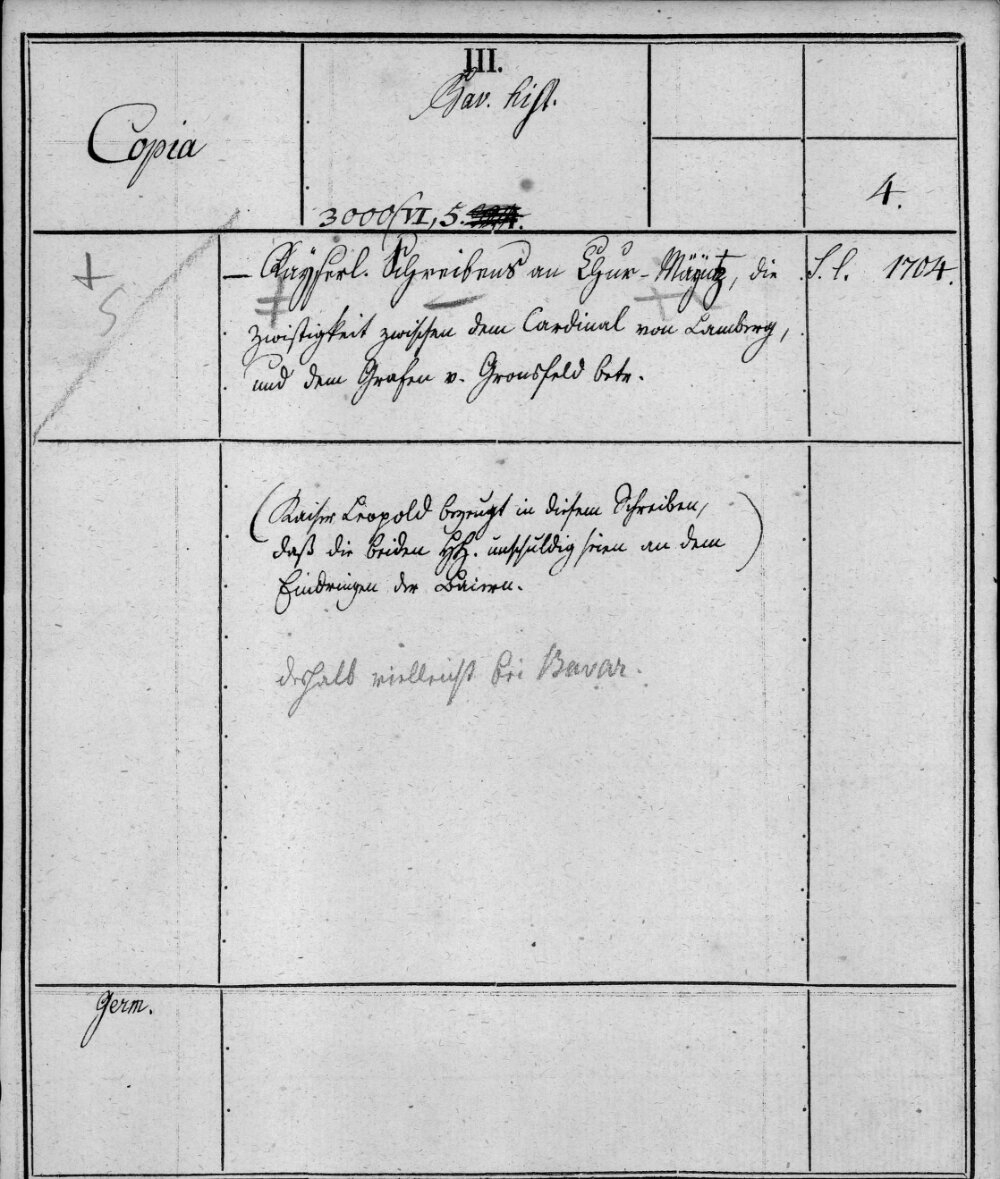 III.
Bav. hist.
Copia
4.
3000/VI, 5.
— Kayserl. Schreibens an Chur-Mäyntz, die
S. l. 1704.
Zwistigkeit zwischen dem Cardinal von Lamberg,
und dem Grafen v. Gronsfeld betr.
(Kaiser Leopold bezeugt in diesem Schreiben,
daß die beiden HH. unschuldig seien an dem
Eindringen der Baiern.)
deshalb vielleicht bei Bavar.
Germ.